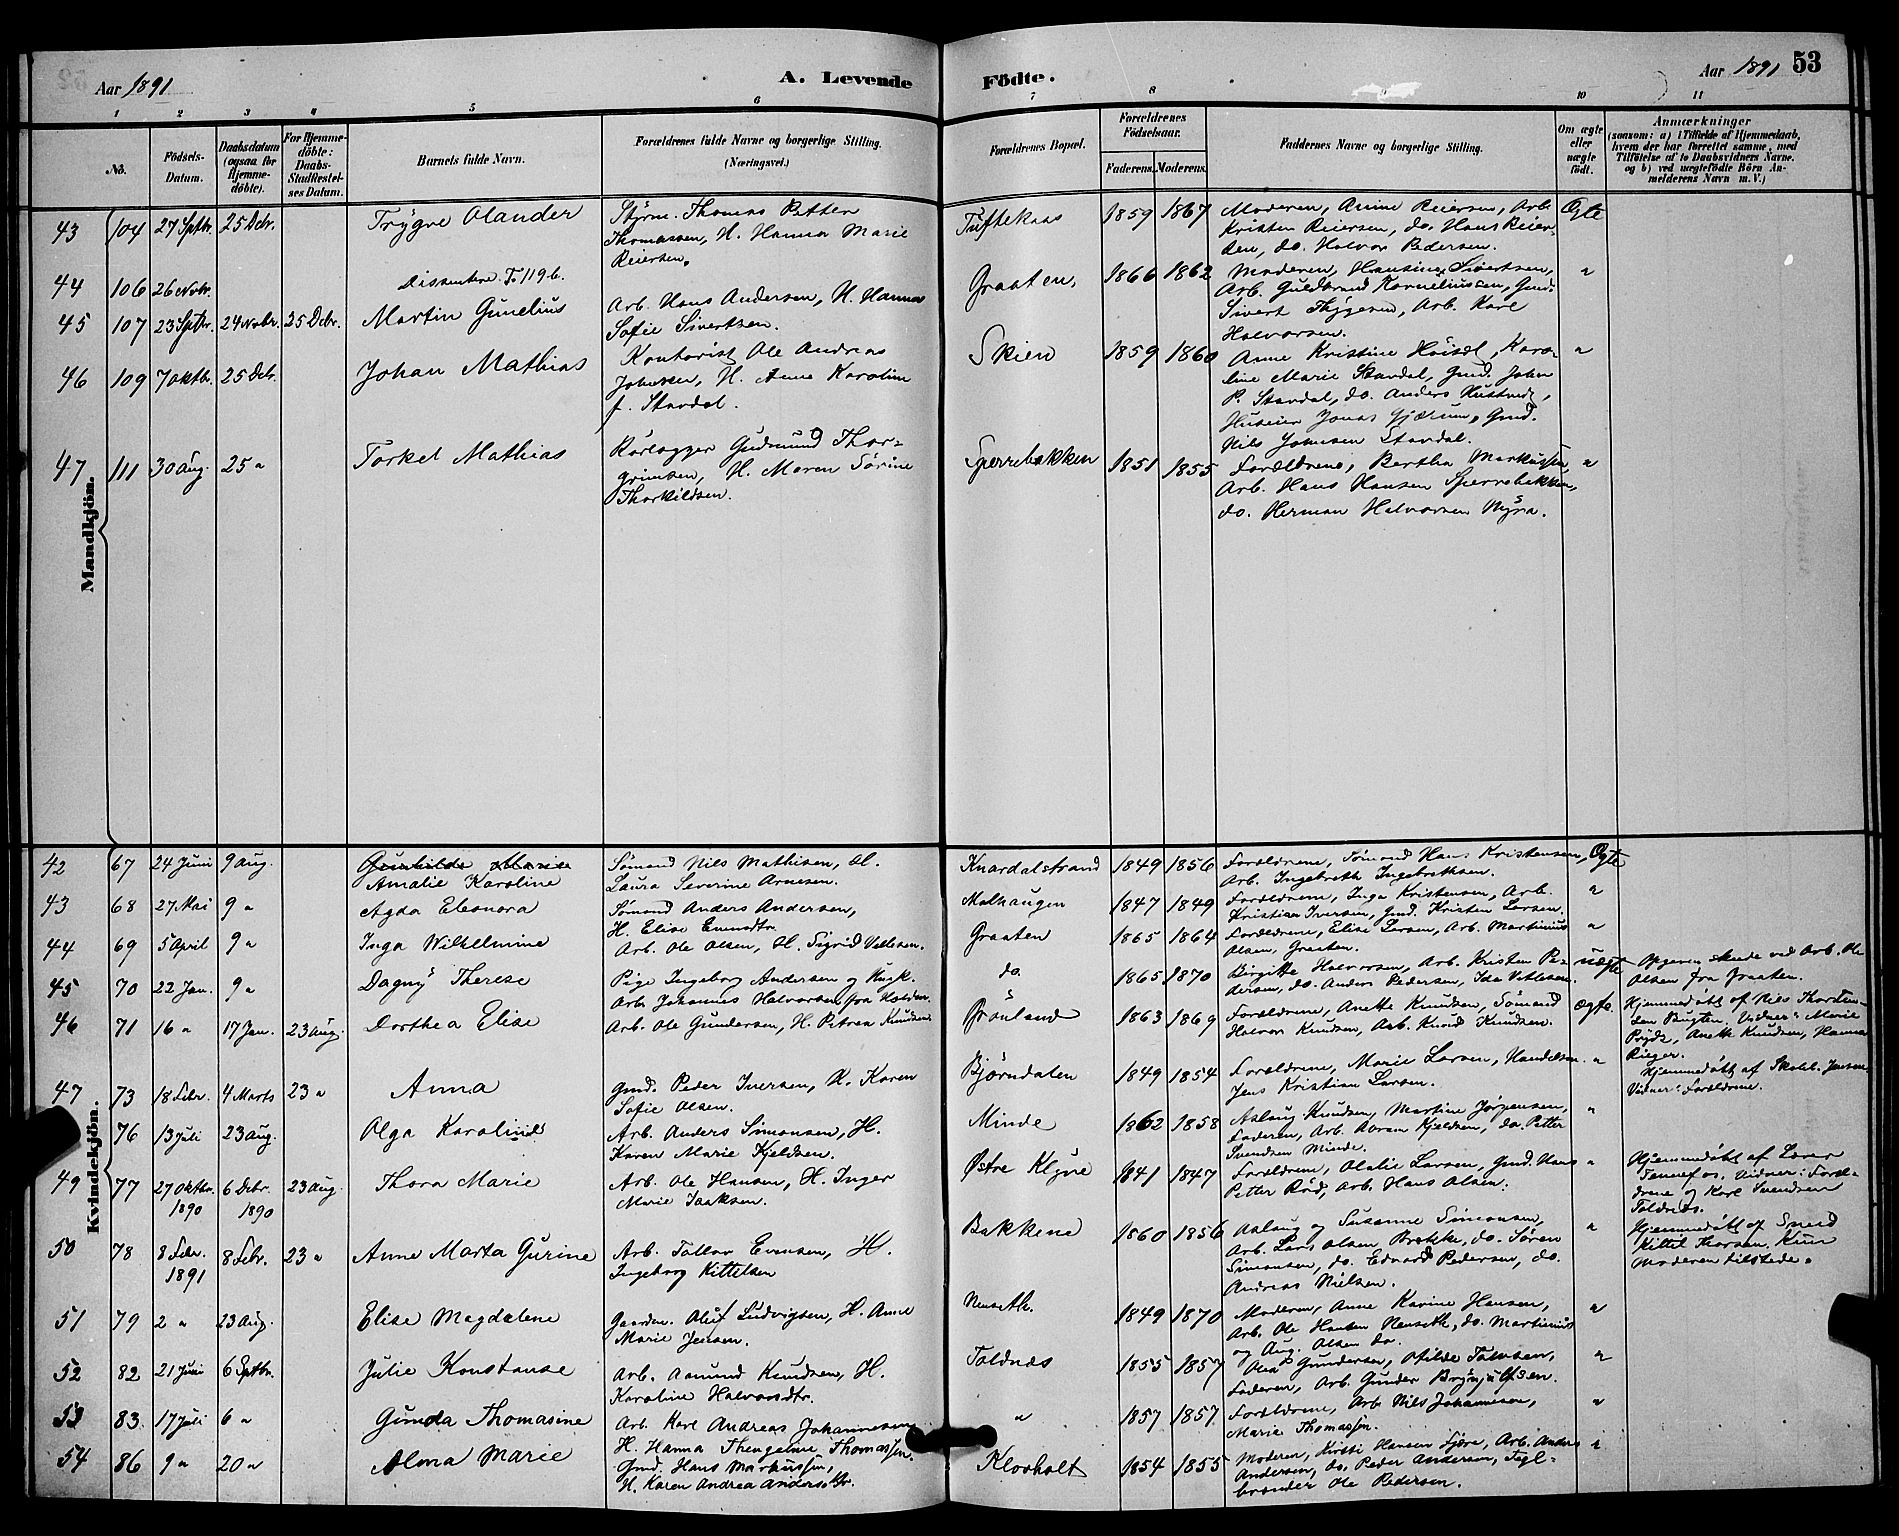 Aar 1891
A. Levende
Födte.
Aar 1891 53
1 2 3 4 5 6 7 8 10 11
No.
Födsels-
Datum.
Daabsdatum
(ogsaa for
Hjemme-
döbte).
For Hjemme-
döbte:
Daabs-
Stadfæstel-
ses Datum.
Barnets fulde Navn.
Forældrenes fulde Navne og borgerlige Stilling.
(Næringsvei.)
Forældrenes Bopæl.
Forældrenes
Födselsaar.
Faderens. Moderens.
Faddernes Navne og borgerlige Stilling.
Om ægte
eller
uægte
födt.
Anmærkninger
(saasom: a) i Tilfælde af Hjemmedaab,
hvem der har forrettet samme, med
Tilföielse af to Daabsvidners Navne,
og b) ved uægtefödte Börn An-
melderens Navn m. V.)
Mandkjön.
43 104 27 Sptbr. 25 Debr. Trygve Olander
Styrm. Thomas Petter
Thomassen, H. Hanna Marie
Reiersen.
Tuftekaas 1859 1867
Moderen, Anine Reiersen, Arb.
Kristen Reiersen, do. Hans Reier-
sen, do. Halvor Pedersen.
Ægte
44 106 26 Novbr. Dissentere. Fo 119 6.
45 107 23 Sptbr. 24 Novbr. 25 Debr. Martin Gunelius
Arb. Hans Andersen, H. Hanna
Sofie Sivertsen.
Graaten, 1866 1862
Moderen, Hansine Sivertsen,
Arb. Guldbrand Korneliussen, Gmd.
Sivert Thygesen, Arb. Karl
Halvorsen.
"
46 109 7 Oktbr. 25 Debr. Johan Mathias
Kontorist Ole Andreas
Johnsen, H. Anne Karoline
f. Stavdal.
Skien 1859 1860
Anne Kristine Høisæt, Karo-
line Marie Stavdal, Gmd. John
P. Stavdal, do. Anders Hustvedt,
Huseier Jonas Gjærum, Gmd.
Nils Johnsen Stavdal.
"
47 111 30 Aug. 25 " Torkel Mathias
Rørlægger Gudmund Thor-
grimsen, H. Maren Sørine
Thorkildsen.
Sperrebækken 1851 1855
Forældrene, Bertha Markussen,
Arb. Hans Hansen Sperrebekken,
do. Herman Halvorsen Myra.
"
Kvindekjön.
42 67 24 Juni 9 Aug. Gunhilde Marie
Amalie Karoline
Sømand Nils Mathisen, H.
Laura Severine Arnesen.
Knardalstrand 1849 1856
Forældrene, Sømand Hans Kristensen,
Arb. Ingebreth Ingebrethsen.
Ægte
43 68 27 Mai 9 " Agda Eleonora
Sømand Anders Andersen,
H. Elise Evensdtr.
Melhaugen 1847 1849
Forældrene, Inga Kristensen, Arb.
Kristian Iversen, Gmd. Kristen Larsen.
"
44 69 5 April 9 " Inga Wilhelmine
Arb. Ole Olsen, H. Sigrid Vetlesen.
Graaten 1865 1864
Forældrene, Elise Larsen, Arb. Martinius
Olsen, Graaten.
"
45 70 22 Jan. 9 " Dagny Therese
Pige Ingeborg Andersen og Ungk.
Arb. Johannes Halvorsen fra Holden.
do. 1865 1870
Birgitte Halvorsen, Arb. Kristen Pe-
dersen, do. Anders Pedersen, Ida Vetlesen.
uægte
Opgaven skede ved Arb. Ole
Olsen fra Graaten.
46 71 16 " 17 Jan. 23 Aug. Dorthea Elise
Arb. Ole Gundersen, H. Petrea Knudsen
Grönland 1863 1869
Forældrene, Anette Knudsen, Sømand
Halvor Knudsen, Arb. Knud Knudsen.
Ægte.
Hjemmedøbt af Nils Thorsten-
sen Bugten. Vidner: Marie
Prydz, Anette Knudsen, Hanna
Rieger.
47 73 18 Febr. 4 Marts 23 " Anna
Gmd. Peder Iversen, H. Karen
Sofie Olsen.
Bjørndalen 1849 1854
Forældrene, Marie Larsen, Handelsm.
Jens Kristian Larsen.
"
Hjemmedøbt af Skolel. Jensen
Vidner: Forældrene.
76 13 Juli 23 Aug. Olga Karoline
Arb. Anders Simonsen, H.
Karen Marie Kjeldsen.
Minde 1862 1858
Aslaug Knudsen, Martine Jørgensen,
Faderen, Arb. Abram Kjeldsen, do. Petter
Svendsen Minde.
"
49 77 27 Oktbr. 1890 6 Debr. 1890 23 Aug. Thora Marie
Arb. Ole Hansen, H. Inger
Marie Isaksen.
Østre Klyve 1841 1847
Forældrene, Olalie Larsen, Gmd. Hans
Petter Rød, Arb. Hans Olsen.
"
Hjemmedøbt af Lærer
Tennefos. Vidner: Foræl-
drene og Karl Svendsen
Toldnæs.
50 78 8 Febr. 1891 8 Febr. 23 " Anne Marta Gurine
Arb. Tollov Evensen, H.
Ingeborg Kittelsen
Bakkene 1860 1856
Aslaug og Susanne Simonsen,
Arb. Lars Olsen Brække, do. Søren
Simonsen, do. Edvard Pedersen, do.
Andreas Nielsen.
"
Hjemmedøbt af Smed
Kittil Thorsen. Kun
Moderen tilstede.
51 79 2 " 23 Aug. Elise Magdalene
Gaardm. Oluf Ludvigsen, H. Anne
Marie Jensen.
Nenseth. 1849 1870
Moderen, Anne Karine Hansen,
Arb. Ole Hansen Nenseth, do. Martinius
og Aug. Olsen do.
"
52 82 21 Juni 6 Sptbr. Julie Konstanse
Arb. Aamund Knudsen, H.
Karoline Halvorsdtr.
Toldnæs 1855 1857
Olea Gundersen, Otilde Tobiasen,
Faderen, Arb. Gunder Brynjulfsen.
"
53 83. 17 Juli 6 " Gunda Thomasine
Arb. Karl Andreas Johannesen
H. Hanna Thengeline Thomassen.
" 1857 1857
Forældrene, Arb. Nils Johannesen,
Marie Thomassen.
"
54 86 9 " 20 " Alma Marie
Gmd. Hans Markussen,
H. Karen Andrea Andersdtr.
Klovholt 1854 1855
Moderen, Kirsti Hansen Fjære, Arb. Anders
Andersen, do. Peder Andersen, Tegl-
brænder Ole Pedersen.
"